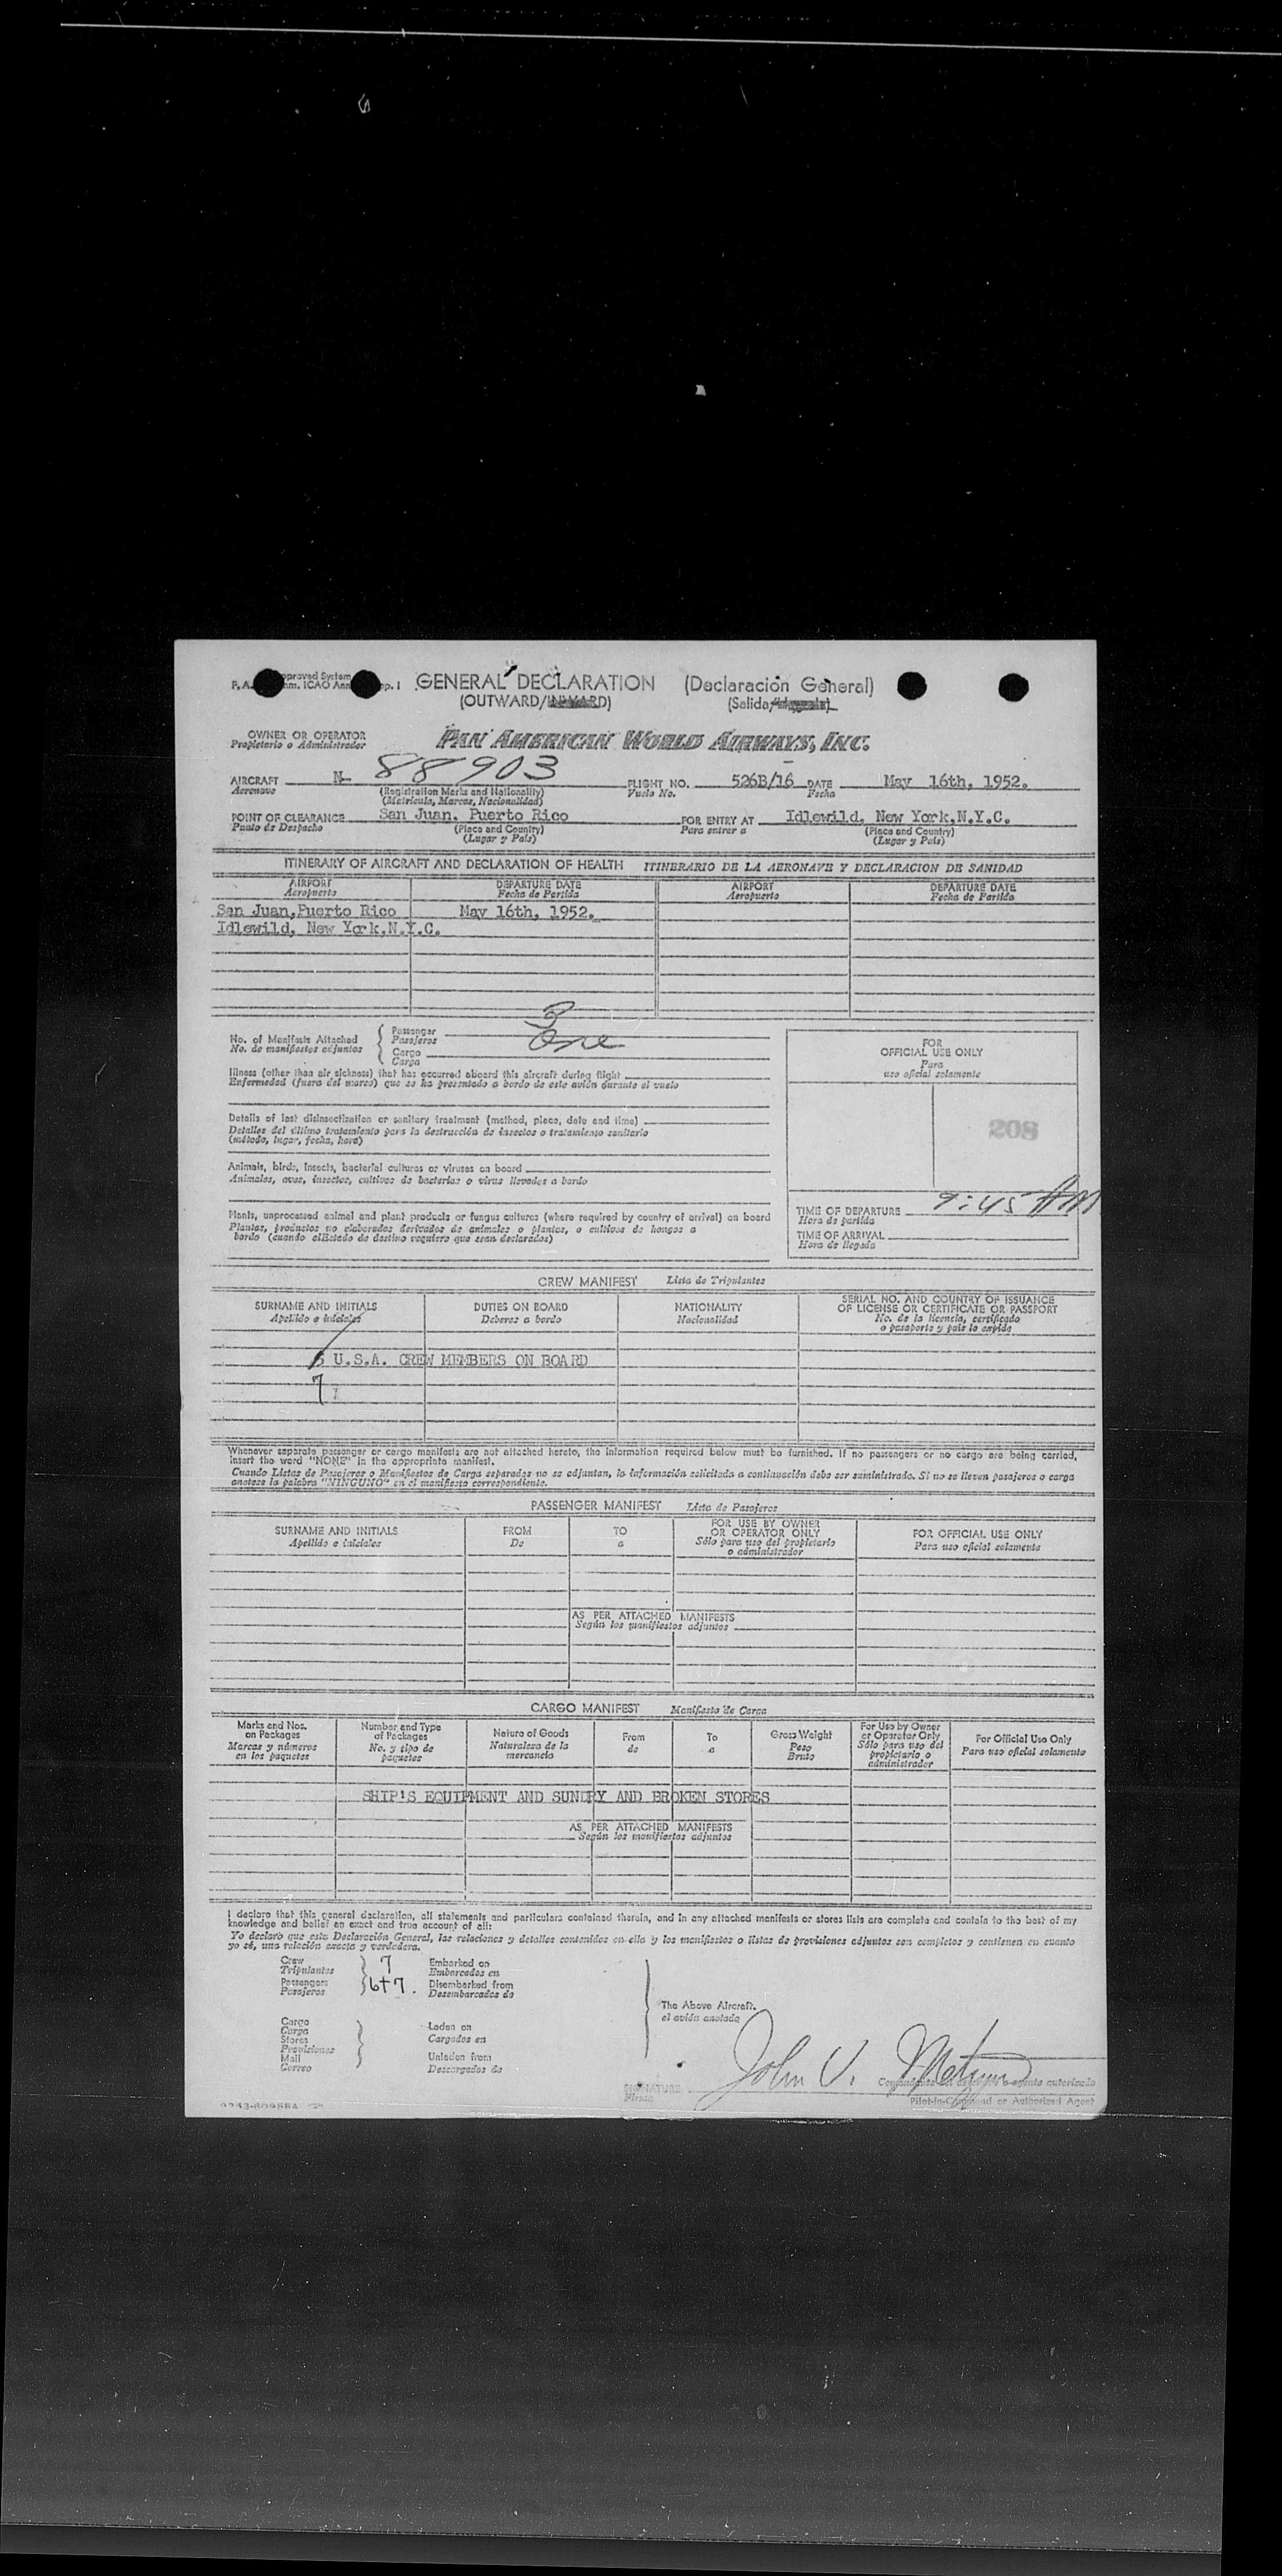 GENERAL DECLARATION (Declaración General)
(OUTWARD/INWARD) (Salida/
OWNER OR OPERATOR
Propietario o Administrador
PAN AMERICAN WORLD AIRWAYS, INC.
AIRCRAFT N- 88903 FLIGHT NO. 526B/16 DATE May 16th, 1952.
Aeronave (Registration Marks and Nationality) Vuelo No. Fecha
(Matricula, Marcas, Nacionalidad)
POINT OF CLEARANCE San Juan. Puerto Rico FOR ENTRY AT Idlewild, New York,N.Y.C.
Punto de Despacho (Place and Country) Para entrar a (Place and Country)
(Lugar y País) (Lugar y País)
ITINERARY OF AIRCRAFT AND DECLARATION OF HEALTH ITINERARIO DE LA AERONAVE Y DECLARACION DE SANIDAD
AIRPORT DEPARTURE DATE AIRPORT DEPARTURE DATE
Aeropuerto Fecha de Partida Aeropuerto Fecha de Partida
San Juan,Puerto Rico May 16th, 1952.
Idlewild, New York,N.Y.C.
No. of Manifests Attached Passenger 3
No. de manifiestos adjuntos Pasajeros
Cargo One
Carga
Illness (other than air sickness) that has occurred aboard this aircraft during flight
Enfermedad (fuera del mareo) que se ha presentado a bordo de este avión durante el vuelo
Details of last disinsectization or sanitary treatment (method, place, date and time)
Detalles del último tratamiento para la destrucción de insectos o tratamiento sanitario
(método, lugar, fecha, hora)
Animals, birds, insects, bacterial cultures or viruses on board
Animales, aves, insectos, cultivos de bacterias o virus llevados a bordo
Plants, unprocessed animal and plant products or fungus cultures (where required by country of arrival) on board
Plantas, productos no elaborados derivados de animales o plantas, o cultivos de hongos a
bordo (cuando el Estado de destino requiera que sean declarados)
FOR
OFFICIAL USE ONLY
Para
uso oficial solamente
208
TIME OF DEPARTURE 9:45 AM
Hora de partida
TIME OF ARRIVAL
Hora de llegada
CREW MANIFEST Lista de Tripulantes
SURNAME AND INITIALS DUTIES ON BOARD NATIONALITY SERIAL NO. AND COUNTRY OF ISSUANCE
OF LICENSE OR CERTIFICATE OR PASSPORT
Apellido e iniciales Deberes a bordo Nacionalidad No. de la licencia, certificado
o pasaporte y país lo expide
U.S.A. CREW MEMBERS ON BOARD
7
Whenever separate passenger or cargo manifests are not attached hereto, the information required below must be furnished. If no passengers or no cargo are being carried,
insert the word "NONE" in the appropriate manifest.
Cuando Listas de Pasajeros o Manifiestos de Carga separados no se adjuntan, la información solicitada a continuación debe ser suministrada. Si no se lleven pasajeros o carga
anotese la palabra "NINGUNO" en el manifiesto correspondiente.
PASSENGER MANIFEST Lista de Pasajeros
SURNAME AND INITIALS FROM TO FOR USE BY OWNER
OR OPERATOR ONLY FOR OFFICIAL USE ONLY
Apellido e iniciales De a Sólo para uso del propietario
o administrador Para uso oficial solamente
AS PER ATTACHED MANIFESTS
Según los manifiestos adjuntos
CARGO MANIFEST Manifiesto de Carga
Marks and Nos.
on Packages
Marcas y números
en los paquetes
Number and Type
of Packages
No. y tipo de
paquetes
Nature of Goods
Naturaleza de la
mercancía
From
de
To
a
Gross Weight
Peso
Bruto
For Use by Owner
or Operator Only
Sólo para uso del
propietario o
administrador
For Official Use Only
Para uso oficial solamente
SHIP'S EQUIPMENT AND SUNDRY AND BROKEN STORES
AS PER ATTACHED MANIFESTS
Según los manifiestos adjuntos
I declare that this general declaration, all statements and particulars contained therein, and in any attached manifests or stores lists are complete and contain to the best of my
knowledge and belief an exact and true account of all:
Yo declaro que esta Declaración General, las relaciones y detalles contenidos en ella y los manifiestos o listas de provisiones adjuntos son completos y contienen en cuanto
yo sé, una relación exacta y verdadera.
Crew 7 Embarked on
Tripulantes Embarcados en
Passengers 6+7. Disembarked from
Pasajeros Desembarcados de
The Above Aircraft.
el avión anotado
Cargo Laden on
Carga Cargados en
Stores
Provisiones
Mail Unladen from
Correo Descargados de
SIGNATURE John V.
Firma
Pilot-in-Command or Authorized Agent